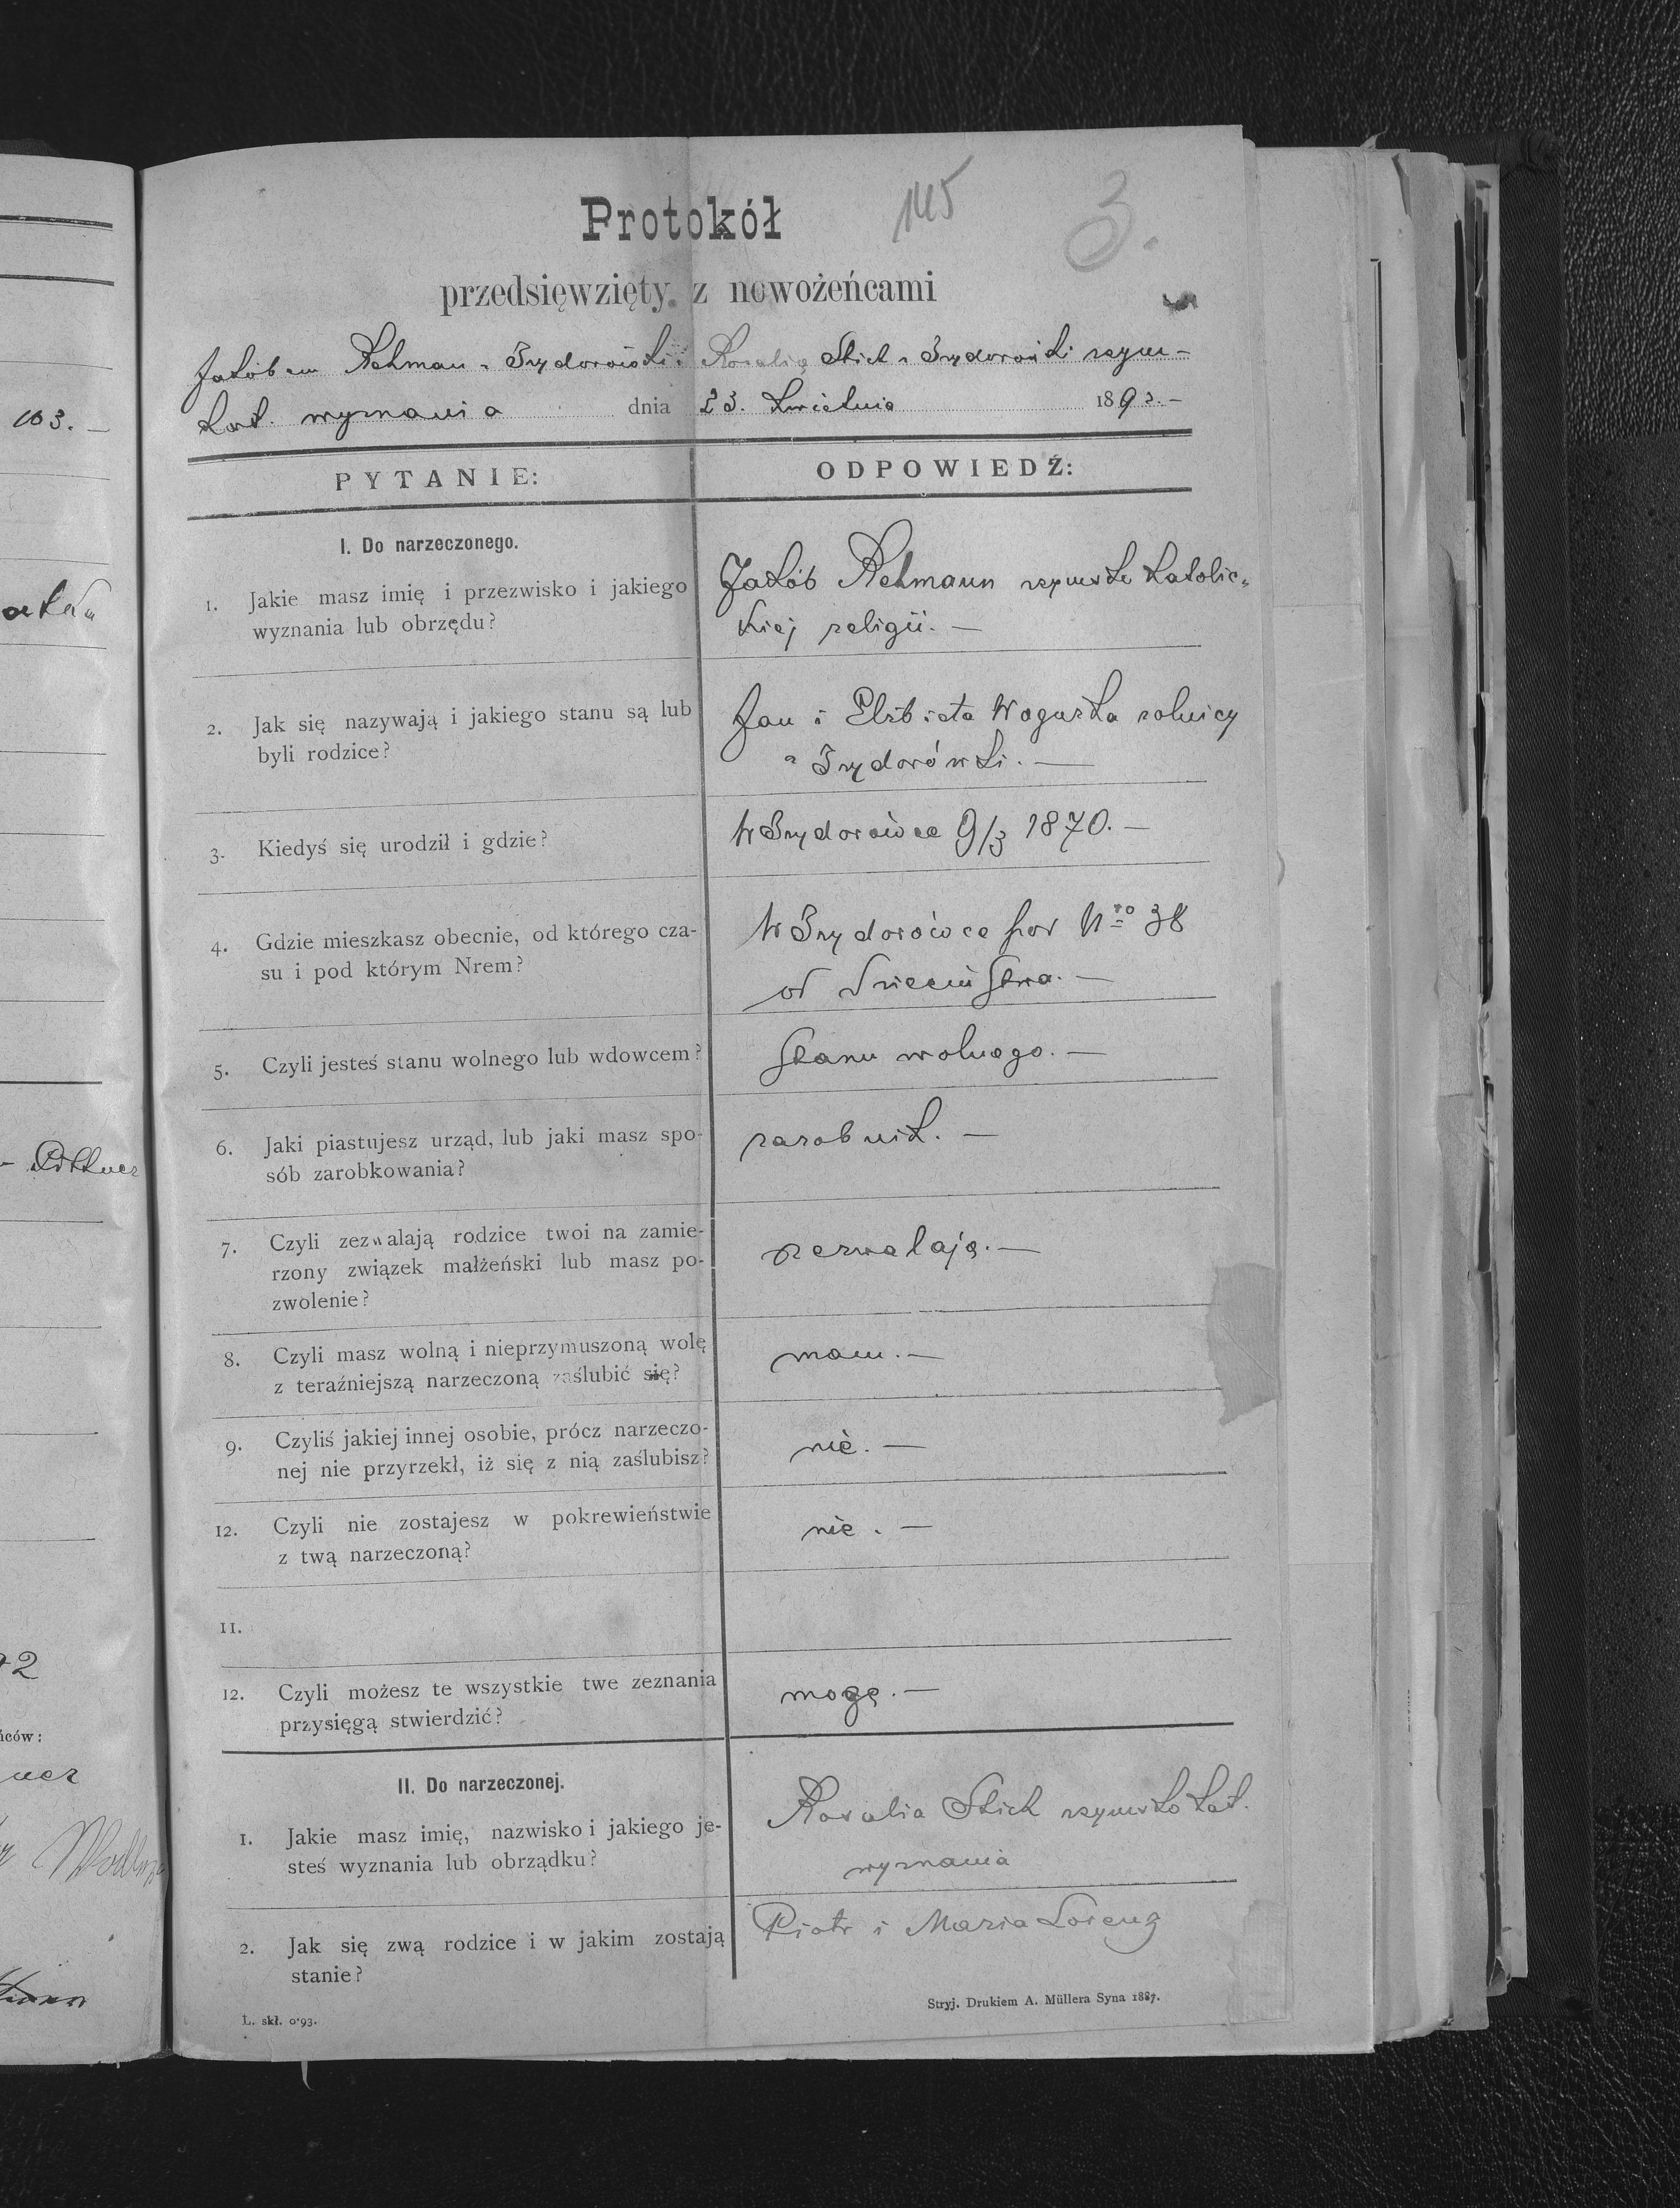 Protokół
145
3.
przedsięwzięty z nowożeńcami
Jakóbem Rehman z Izydorówki i Rozalią Stich z Izydorówki rzym-
kat. wyznania dnia 23. Kwietnia 1893.-
PYTANIE:
ODPOWIEDŹ:
I. Do narzeczonego.
1. Jakie masz imię i przezwisko i jakiego
wyznania lub obrzędu?
Jakób Rehmann rzymsko katolic-
kiej religii. —
2. Jak się nazywają i jakiego stanu są lub
byli rodzice?
Jan i Elżbieta Woguska rolnicy
z Izydorówki. —
3. Kiedyś się urodził i gdzie?
W Izydorówce 9/3 1870. —
4. Gdzie mieszkasz obecnie, od którego cza-
su i pod którym Nrem?
W Izydorówce pod Nro 38
od dzieciństwa. —
5. Czyli jesteś stanu wolnego lub wdowcem?
Stanu wolnego. —
6. Jaki piastujesz urząd, lub jaki masz spo-
sób zarobkowania?
zarobnik. —
7. Czyli zezwalają rodzice twoi na zamie-
rzony związek małżeński lub masz po-
zwolenie?
zezwalają. —
8. Czyli masz wolną i nieprzymuszoną wolę
z teraźniejszą narzeczoną zaślubić się?
mam. —
9. Czyliś jakiej innej osobie, prócz narzeczo-
nej nie przyrzekł, iż się z nią zaślubisz?
nie. —
12. Czyli nie zostajesz w pokrewieństwie
z twą narzeczoną?
nie. —
11.
12. Czyli możesz te wszystkie twe zeznania
przysięgą stwierdzić?
mogę. —
II. Do narzeczonej.
1. Jakie masz imię, nazwisko i jakiego je-
steś wyznania lub obrządku?
Rozalia Stich rzymsko kat.
wyznania
2. Jak się zwą rodzice i w jakim zostają
stanie?
Piotr i Maria Lorenz
L. skł. 0·93.
Stryj. Drukiem A. Müllera Syna 1887.
103. —
ńców: